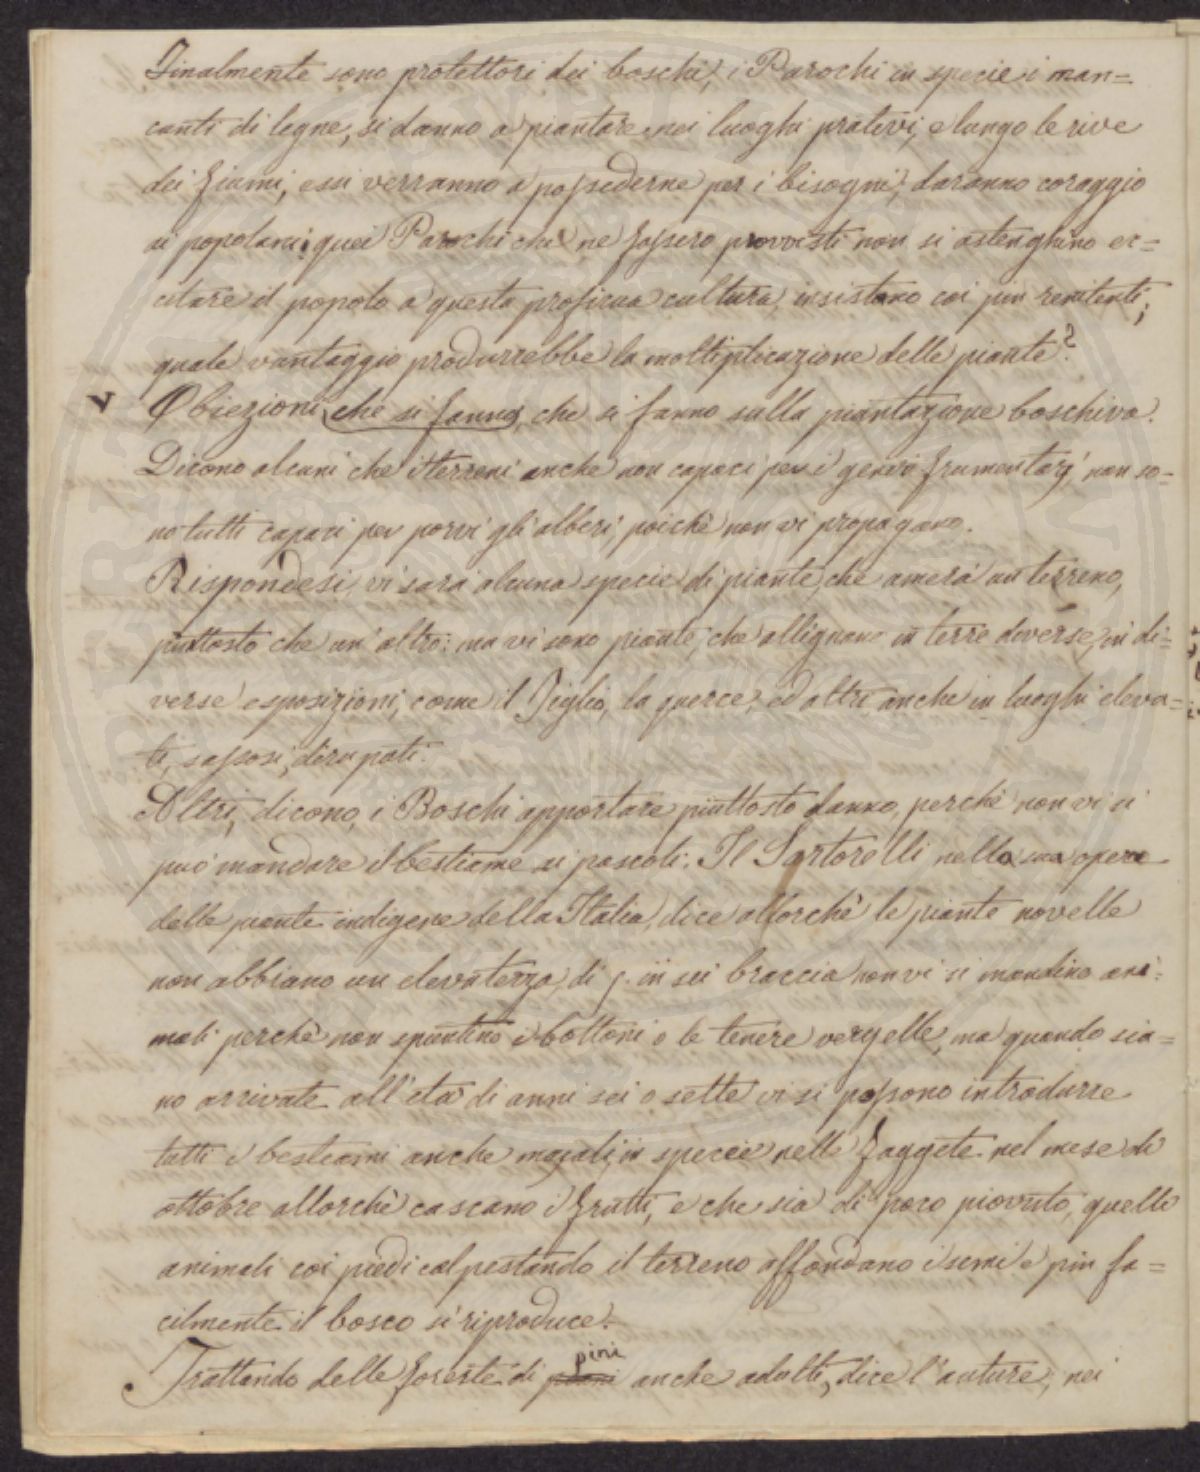 Finalmente sono protettori dei boschi, i Parochi in specie i man=
canti di legne, si danno a piantare nei luoghi prativi, e lungo le rive
dei fiumi, essi verranno a possederne per i bisogni, daranno coraggio
ai popolani; quei Parochi che ne fossero provvisti non si astenghino ec=
citare il popolo a questa proficua cultura, insistano coi piu renitenti;
quale vantaggio produrrebbe la moltiplicazione delle piante?
V Obiezioni che si fanno, che si fanno sulla piantazione boschiva.
Dicono alcuni che i terreni anche non capaci per i generi frumentarj, non so=
no tutti capaci per porvi gli alberi, poichè non vi propagano.
Rispondesi, vi sarà alcuna specie di piante, che amerà un terreno,
piuttosto che un' altro: ma vi sono piante, che allignano in terre diverse, in di=
verse esposizioni, come il Tiglio, la querce, ed altri anche in luoghi eleva=
ti, sassosi, dirupati.
Altri, dicono, i Boschi apportare piuttosto danno, perchè non vi si
può mandare il bestiame ai pascoli. Il Sartorelli nella sua opera
delle piante indigene della Italia, dice allorchè le piante novelle
non abbiano un elevatezza di 5. in sei braccia non vi si mandino ani=
mali perchè non spuntino i bottoni o le tenere vergelle, ma quando sia=
no arrivate all'età di anni sei o sette vi si possono introdurre
tutti i bestiami anche majali, in specie nelle faggete nel mese di
ottobre allorchè cascano i frutti, e che sia di poco piovuto, quelli
animali coi piedi calpestando il terreno affondano i semi e piu fa=
cilmente il bosco si riproduce.
Trattando delle foreste di pini anche adulte, dice l'autore, nei